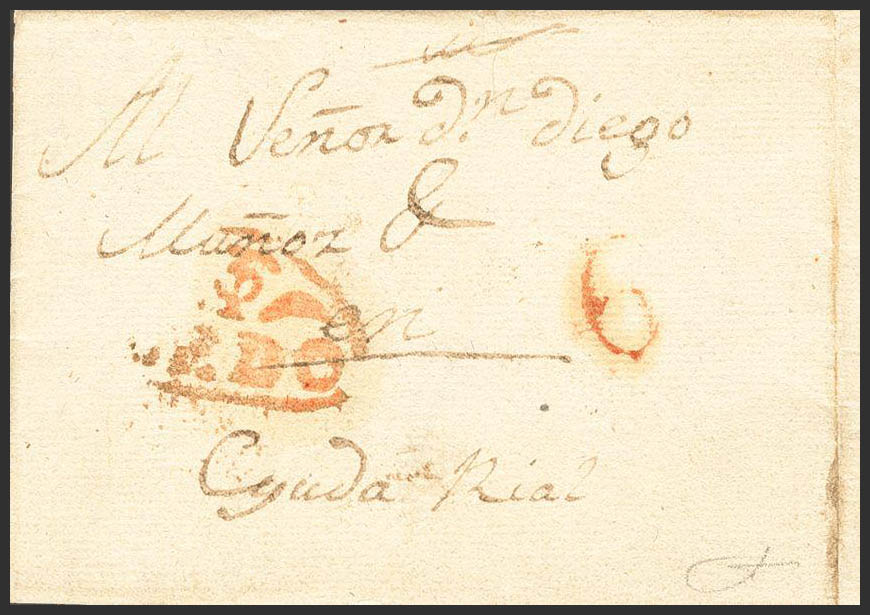 Al Señor d.n diego
Muñoz &
en
Cyudá Rial
6